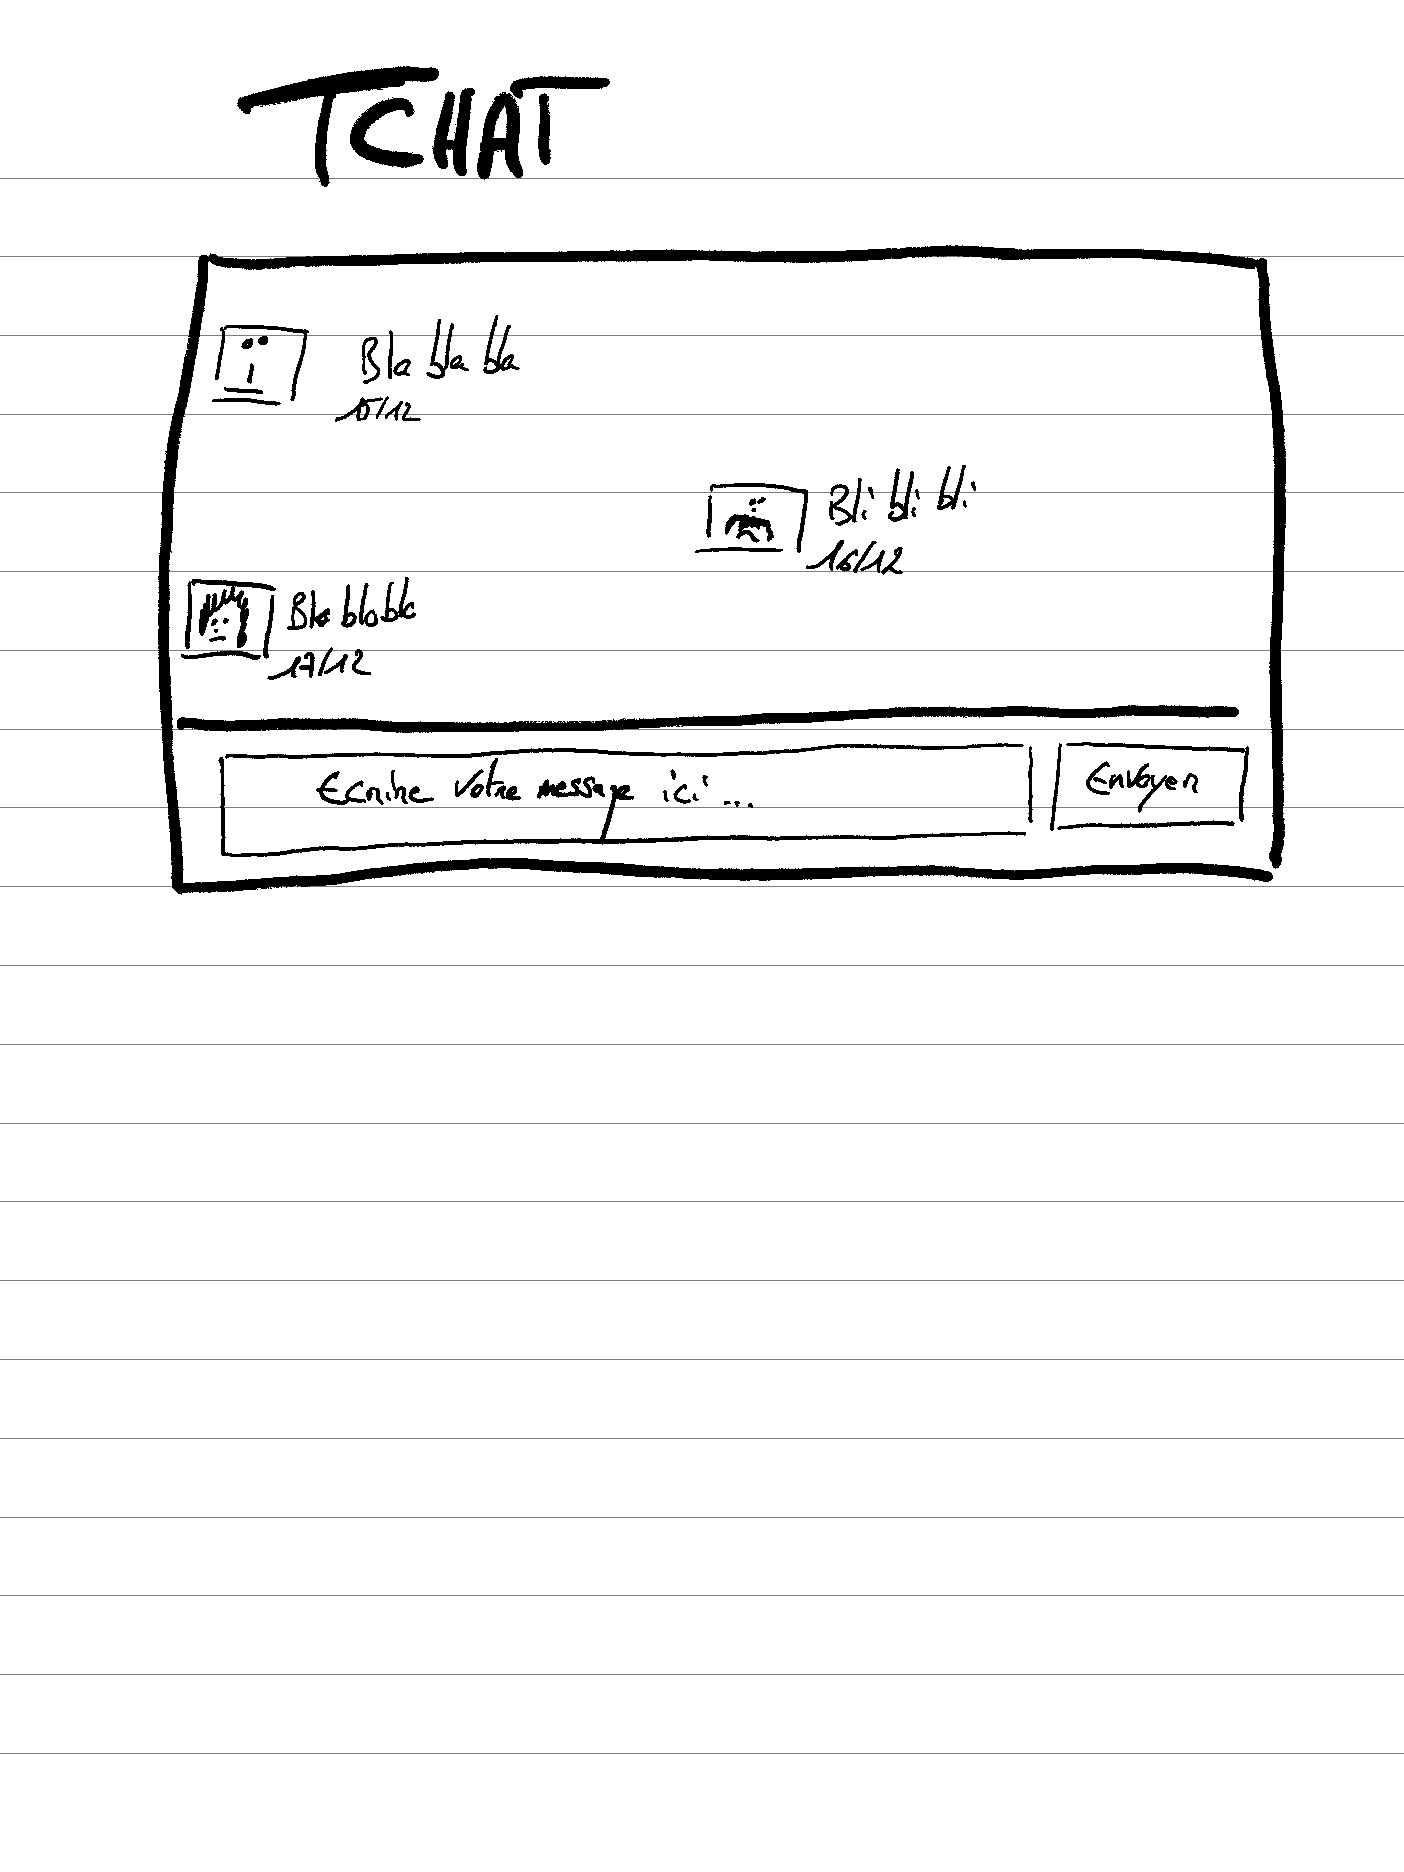 TCHAT
Bla bla bla
15/12
Bli bli bli
16/12
Bla bla bla
17/12
Ecrire votre message ici ...
Envoyer